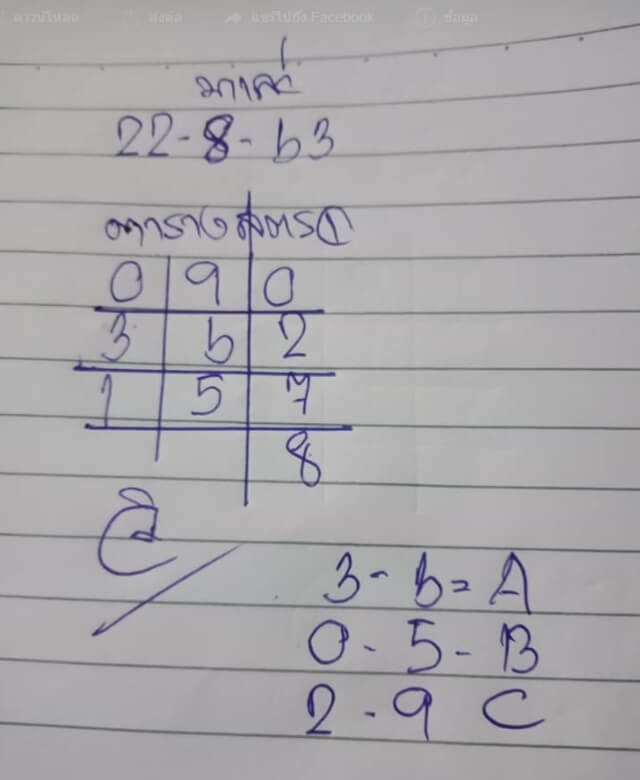 ดาวน์โหลด ส่งต่อ แชร์ไปยัง Facebook ข้อมูล
มาเลย์
22-8-63
ตารางสูตร
0 9 0
3 6 2
1 5 7
8
3-6=A
0-5-B
2-9 C